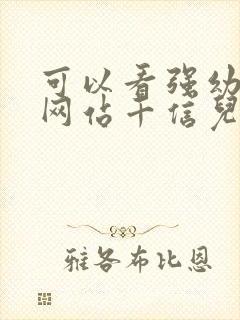 可以看强幼
网佔十信兒
雅各布比恩